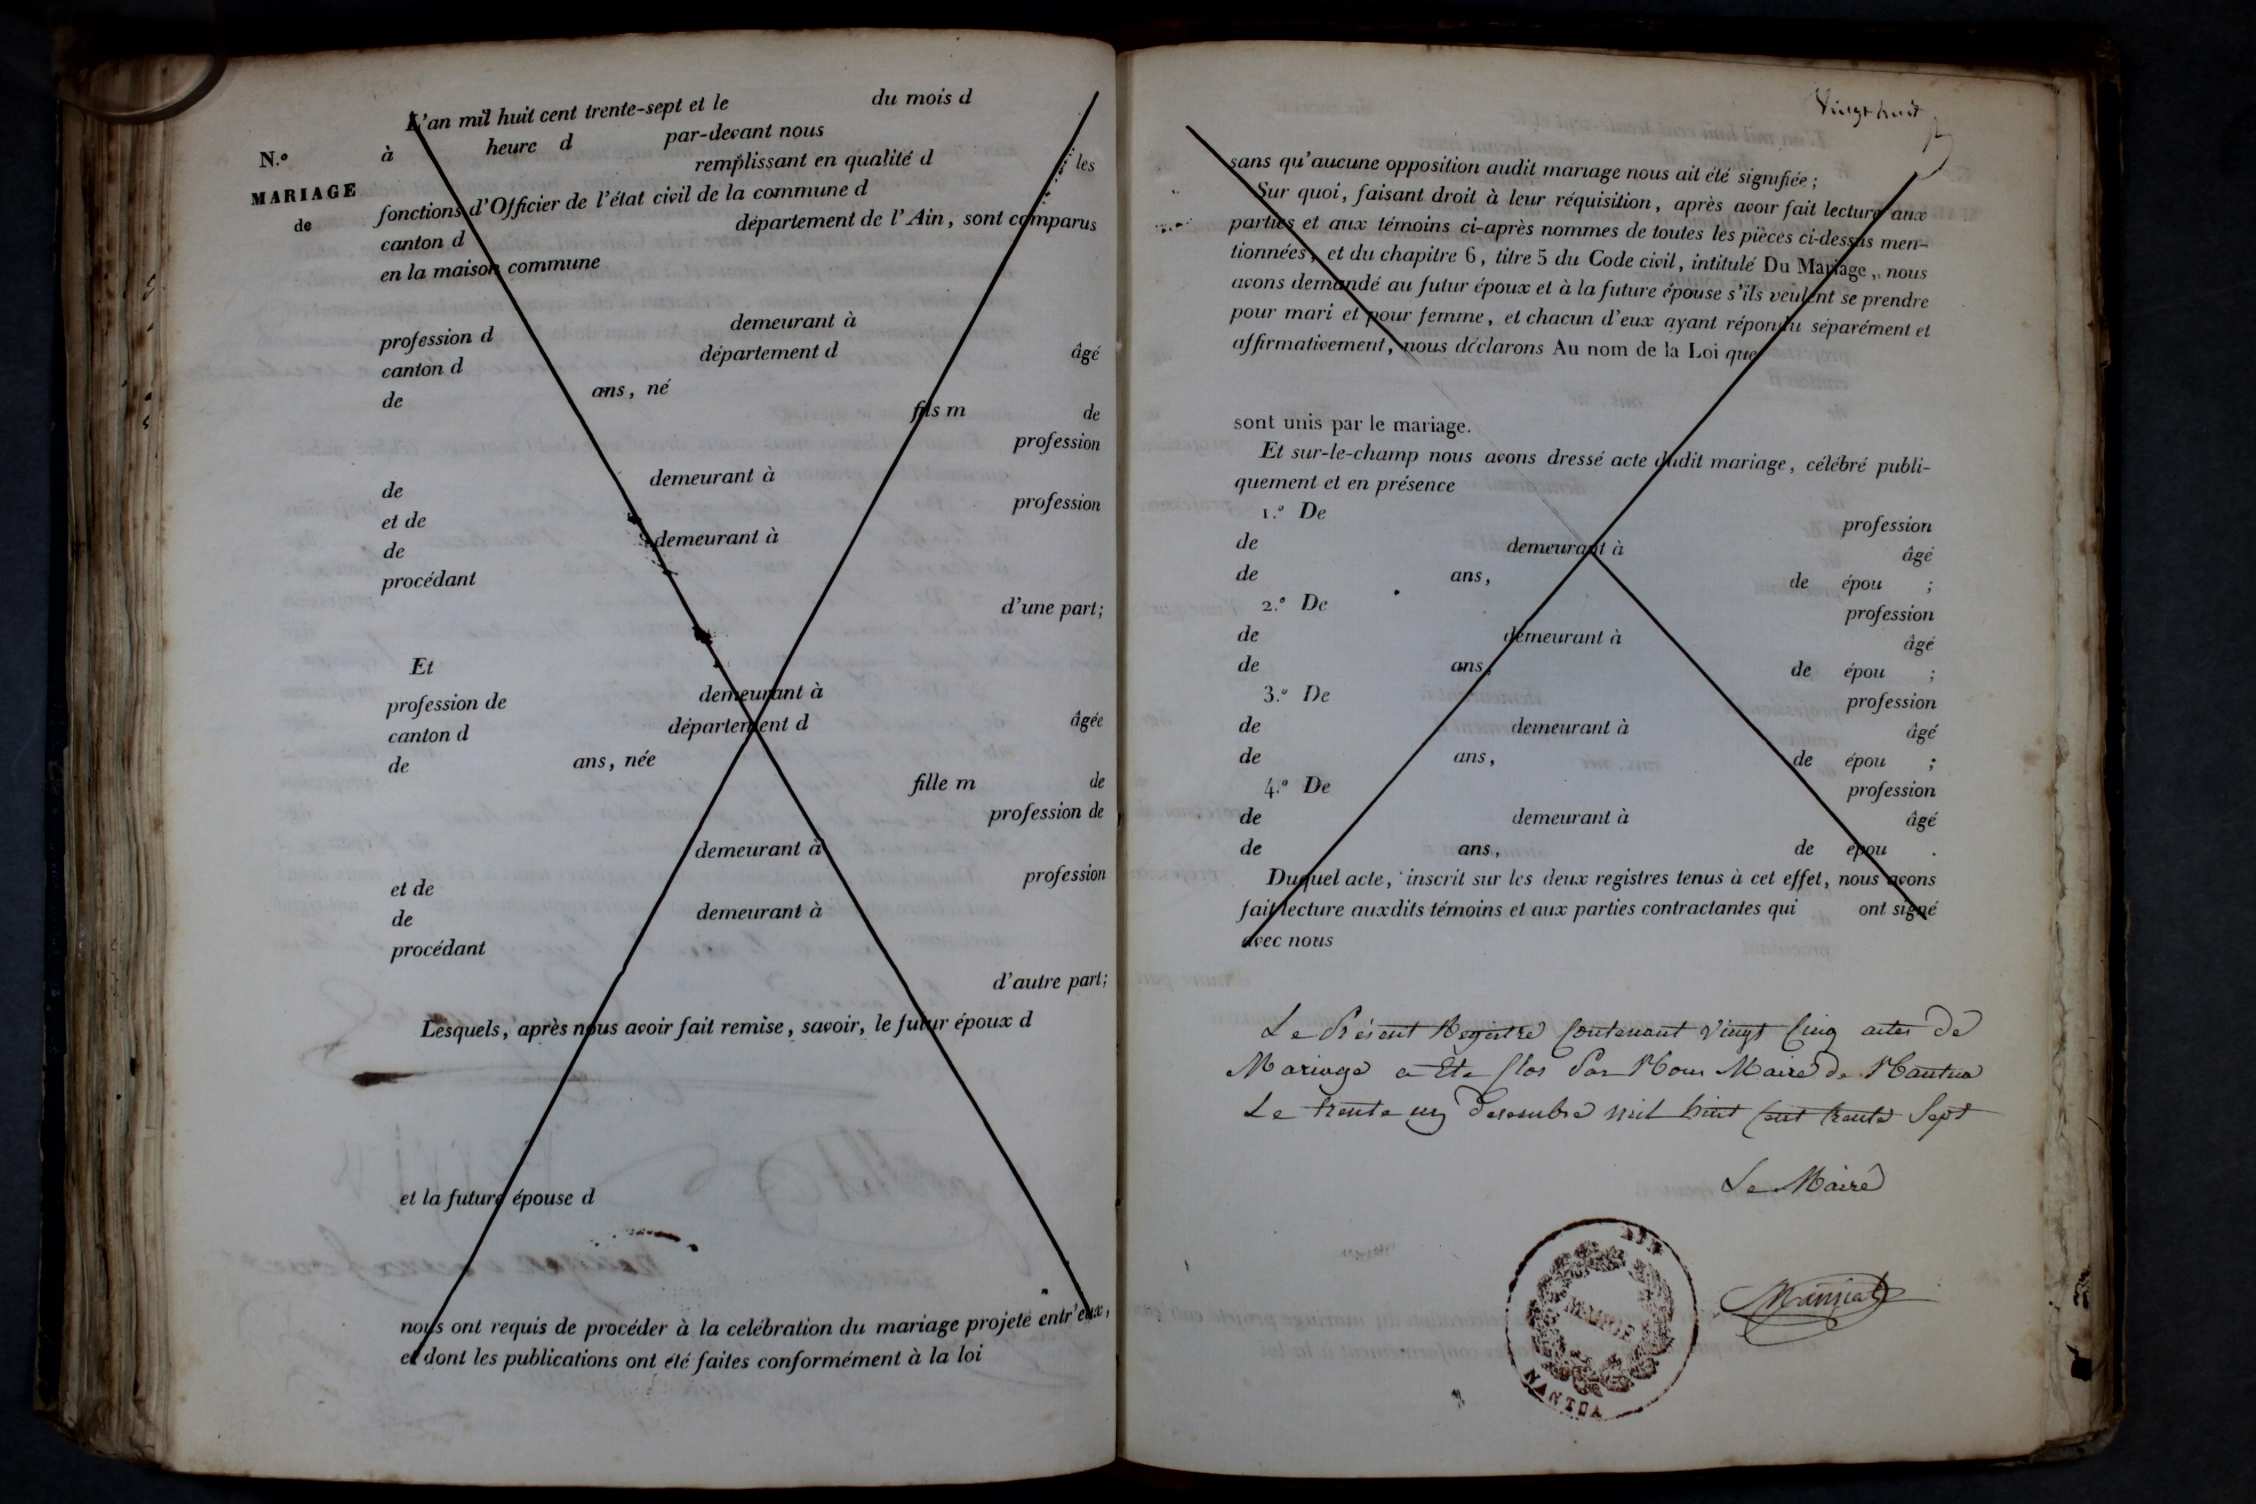 L'an mil huit cent trente-sept et le du mois d
N.º à heure d par-devant nous
remplissant en qualité d les
MARIAGE
fonctions d'Officier de l'état civil de la commune d
de
canton d département de l'Ain, sont comparus
en la maison commune
profession d demeurant à
canton d département d âgé
de ans, né
fils m de
profession
de demeurant à
et de profession
de demeurant à
procédant
d'une part;
Et
profession de demeurant à
canton d département d âgée
de ans, née
fille m de
profession de
demeurant à
et de profession
de demeurant à
procédant
d'autre part;
Lesquels, après nous avoir fait remise, savoir, le futur époux d
et la future épouse d
nous ont requis de procéder à la celébration du mariage projeté entr'eux,
et dont les publications ont été faites conformément à la loi
Vingt huit
sans qu'aucune opposition audit mariage nous ait été signifiée;
Sur quoi, faisant droit à leur réquisition, après avoir fait lecture aux
parties et aux témoins ci-après nommes de toutes les pièces ci-dessus men-
tionnées, et du chapitre 6, titre 5 du Code civil, intitulé Du Mariage, nous
avons demandé au futur époux et à la future épouse s'ils veulent se prendre
pour mari et pour femme, et chacun d'eux ayant répondu séparément et
affirmativement, nous déclarons Au nom de la Loi que
sont unis par le mariage.
Et sur-le-champ nous avons dressé acte dudit mariage, célébré publi-
quement et en présence
1.º De profession
de demeurant à âgé
de ans, de épou ;
2.º De profession
de demeurant à âgé
de ans, de épou ;
3.º De profession
de demeurant à âgé
de ans, de épou ;
4.º De profession
de demeurant à âgé
de ans, de epou .
Duquel acte, inscrit sur les deux registres tenus à cet effet, nous avons
fait lecture auxdits témoins et aux parties contractantes qui ont signé
avec nous
Le Présent Registre Contenant Vingt Cinq actes De
Mariage a Eté Clos Par Nous Maire de Nantua
Le trente un Decembre mil huit Cent trente Sept
Le Maire
AIN
MAIRIE
NANTUA